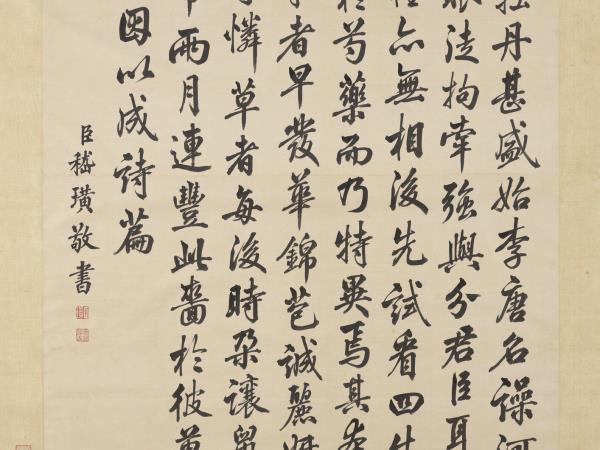 牡丹甚盛始李唐名譟河
眼徒拘牽強與分君臣耳
亦無相後先試看四
於芍藥而乃特異焉其
者早發華錦苞誠麗
憐草者每後時朶讓
兩月連豐此嗇於彼
因以成詩篇
臣嵇璜敬書